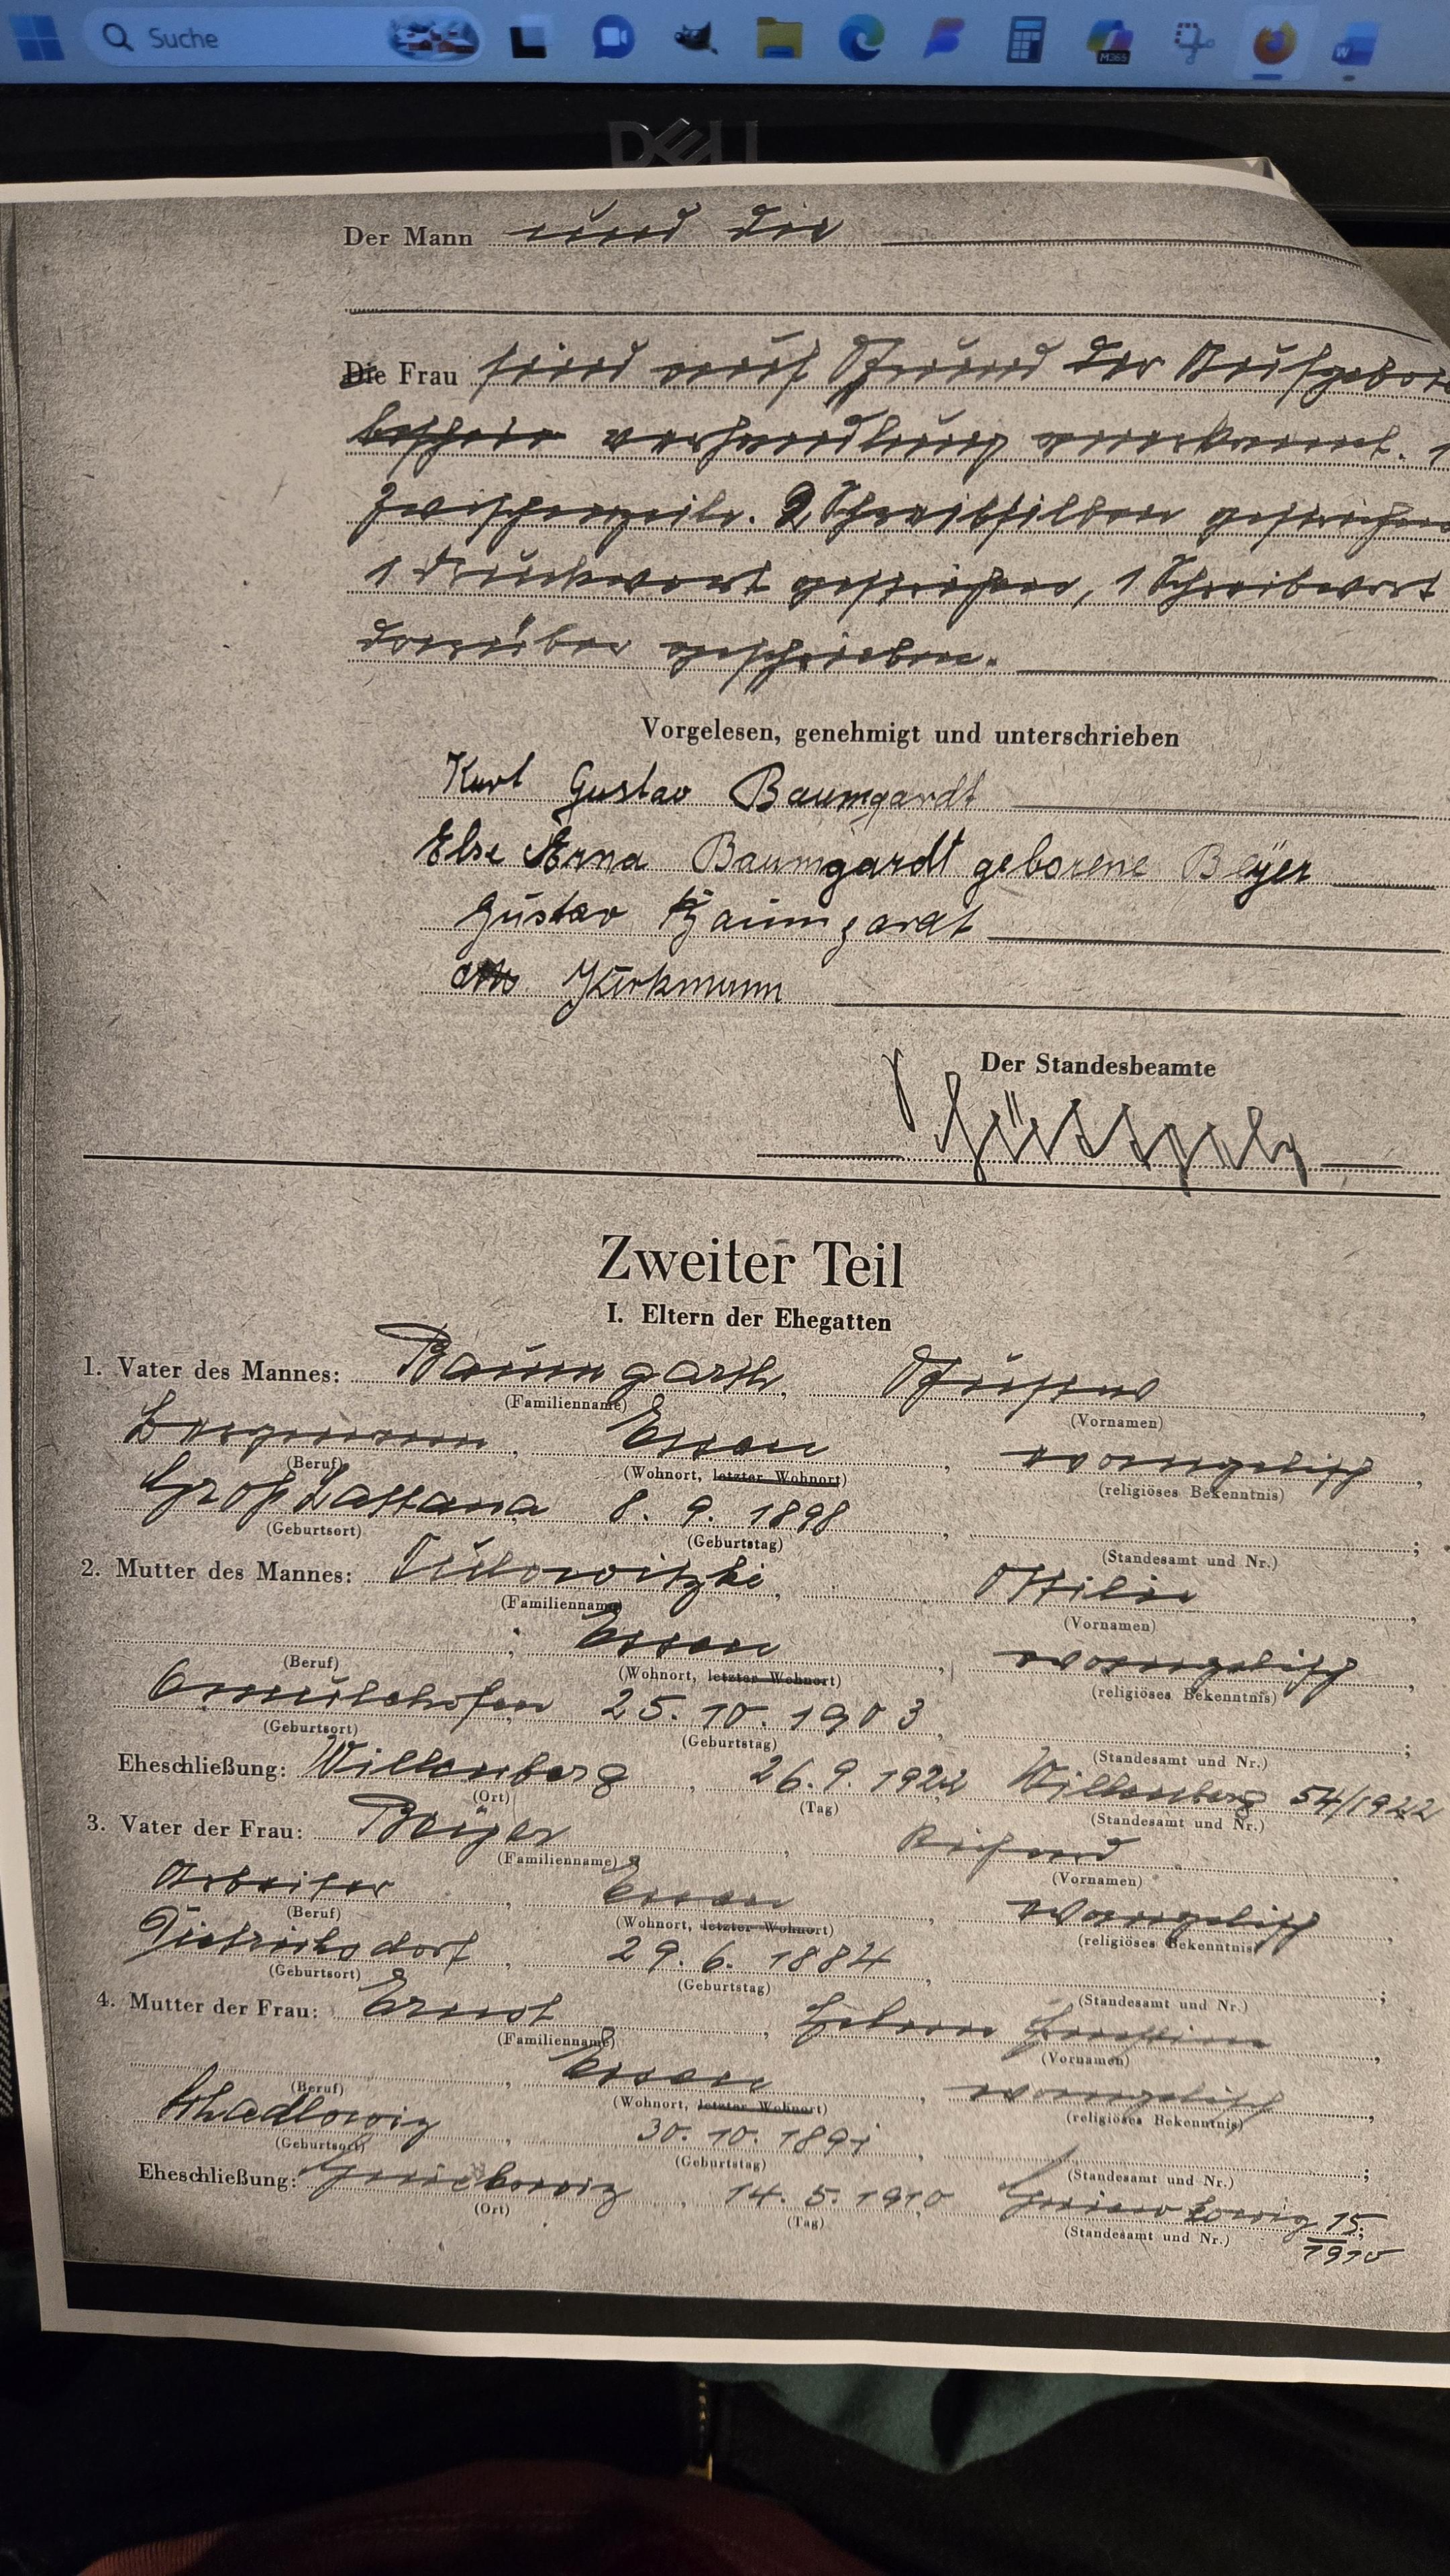 Suche
M365
DELL
Der Mann und die
Die Frau sind auf Grund der Aufgebots
verhandlung anerkannt. 1
Zwischenzeile. 2 Schreibsilben gestrichen
1 Druckwort gestrichen, 1 Schreibwort
darüber geschrieben.
Vorgelesen, genehmigt und unterschrieben
Kurt Gustav Baumgardt
Else Erna Baumgardt geborene Beÿer
Gustav Baumgardt
Kirkmann
Der Standesbeamte
Zweiter Teil
I. Eltern der Ehegatten
1. Vater des Mannes: Baumgardt, Gustav,
(Familienname) (Vornamen)
Bergmann, Essen, evangelisch,
(Beruf) (Wohnort, letzter Wohnort) (religiöses Bekenntnis)
Groß Lattana 8. 9. 1898,
(Geburtsort) (Geburtstag) (Standesamt und Nr.) ;
2. Mutter des Mannes: , Ottilie,
(Familienname) (Vornamen)
, Essen, evangelisch,
(Beruf) (Wohnort, letzter Wohnort) (religiöses Bekenntnis)
25. 10. 1903,
(Geburtsort) (Geburtstag) (Standesamt und Nr.) ;
Eheschließung: Willenberg, 26. 9. 1922 Willenberg 54/1922
(Ort) (Tag) (Standesamt und Nr.)
3. Vater der Frau: Beÿer, Richard,
(Familienname) (Vornamen)
Arbeiter, Essen, evangelisch,
(Beruf) (Wohnort, letzter Wohnort) (religiöses Bekenntnis)
Dietrichsdorf, 29. 6. 1884,
(Geburtsort) (Geburtstag) (Standesamt und Nr.) ;
4. Mutter der Frau: Ernst, Helene
(Familienname) (Vornamen)
, Essen, evangelisch,
(Beruf) (Wohnort, letzter Wohnort) (religiöses Bekenntnis)
, 30. 10. 1891,
(Geburtsort) (Geburtstag) (Standesamt und Nr.) ;
Eheschließung: , 14. 5. 1910 15/1910
(Ort) (Tag) (Standesamt und Nr.)